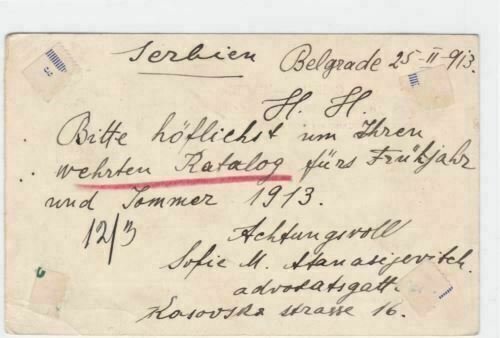 Serbien
Belgrade 25-II-913.
H. H.
Bitte höflichst um Ihren
wehrten Katalog fürs Frühjahr
und Sommer 1913.
12/3
Achtungsvoll
Sofie M. Atanasijevitch.
advokatsgatt.
Kosovska strasse 16.